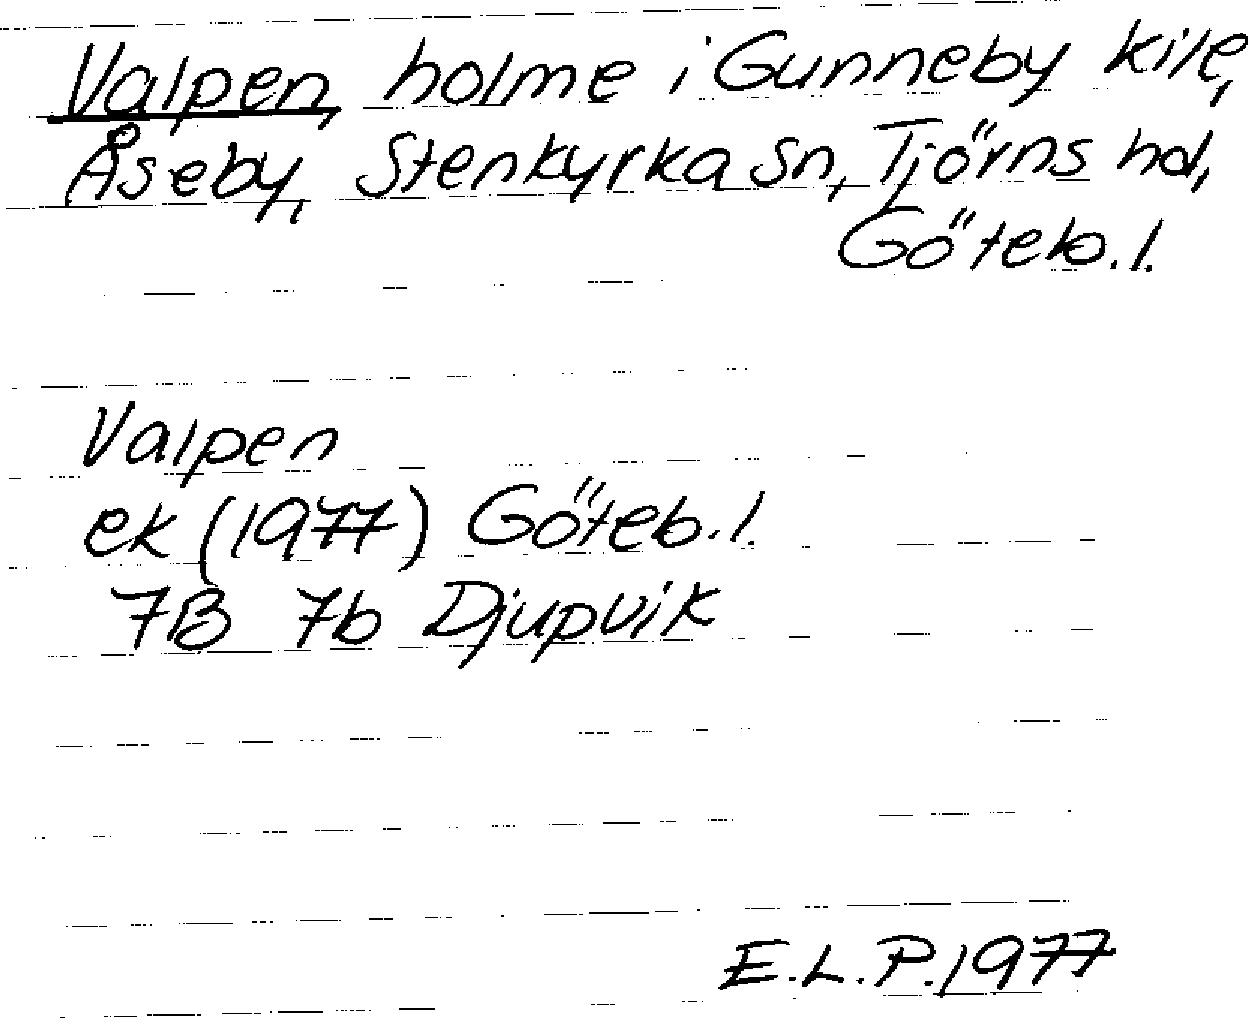 Valpen, holme i Gunneby kile,
Åseby, Stenkyrka sn, Tjörns hd,
Göteb.l.
Valpen
ek (1977) Göteb.l.
7B 7b Djupvik
E.L.P. 1977